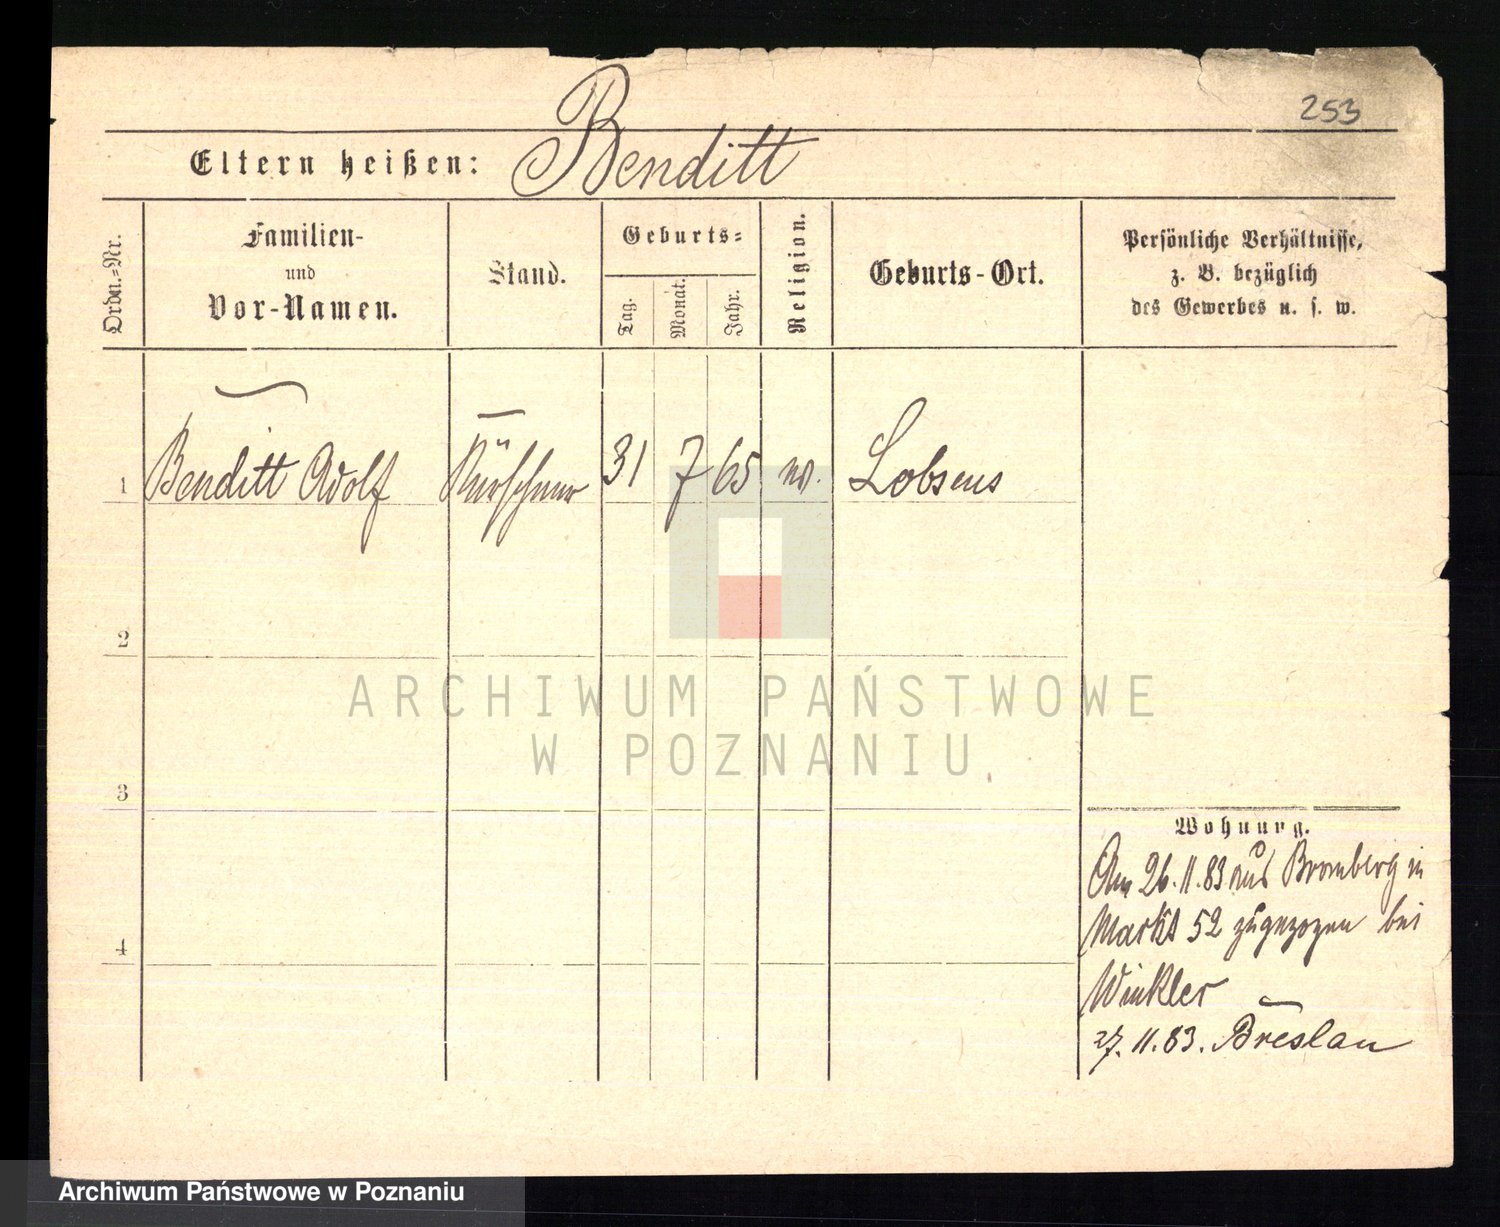 253
Eltern heißen: Benditt
Ordn.-Nr.
Familien-
und
Vor-Namen.
Stand.
Geburts-
Tag.
Monat.
Jahr.
Religion.
Geburts-Ort.
Persönliche Verhältnisse,
z. B. bezüglich
des Gewerbes u. s. w.
1 Benditt Adolf Kürschner 31 7 65 Lobsens
2
3
4
Wohnung.
Am 26.11.83 aus Bromberg in
Markt 52 zugezogen bei
Winkler
27.11.83. Breslau
ARCHIWUM PAŃSTWOWE
W POZNANIU
Archiwum Państwowe w Poznaniu